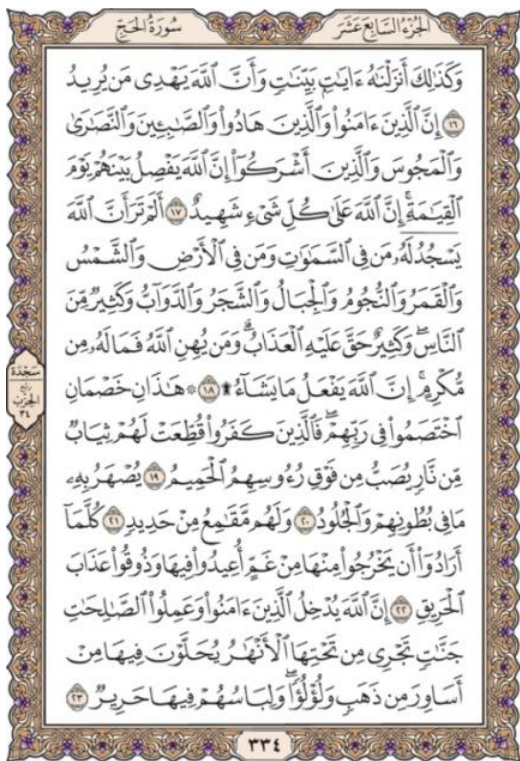 الجُزْءُ السَّابِعَ عَشَرَ
سُورَةُ الحَجِّ
وَكَذَٰلِكَ أَنزَلْنَٰهُ ءَايَٰتِۭ بَيِّنَٰتٖ وَأَنَّ ٱللَّهَ يَهْدِى مَن يُرِيدُ
١٦ إِنَّ ٱلَّذِينَ ءَامَنُوا۟ وَٱلَّذِينَ هَادُوا۟ وَٱلصَّٰبِـِٔينَ وَٱلنَّصَٰرَىٰ
وَٱلْمَجُوسَ وَٱلَّذِينَ أَشْرَكُوٓا۟ إِنَّ ٱللَّهَ يَفْصِلُ بَيْنَهُمْ يَوْمَ
ٱلْقِيَٰمَةِۚ إِنَّ ٱللَّهَ عَلَىٰ كُلِّ شَىْءٖ شَهِيدٌ ١٧ أَلَمْ تَرَ أَنَّ ٱللَّهَ
يَسْجُدُ لَهُۥ مَن فِى ٱلسَّمَٰوَٰتِ وَمَن فِى ٱلْأَرْضِ وَٱلشَّمْسُ
وَٱلْقَمَرُ وَٱلنُّجُومُ وَٱلْجِبَالُ وَٱلشَّجَرُ وَٱلدَّوَآبُّ وَكَثِيرٌ مِّنَ
ٱلنَّاسِۖ وَكَثِيرٌ حَقَّ عَلَيْهِ ٱلْعَذَابُۗ وَمَن يُهِنِ ٱللَّهُ فَمَا لَهُۥ مِن
مُّكْرِمٍۚ إِنَّ ٱللَّهَ يَفْعَلُ مَا يَشَآءُ ۩ ١٨ ۞ هَٰذَانِ خَصْمَانِ
ٱخْتَصَمُوا۟ فِى رَبِّهِمْۖ فَٱلَّذِينَ كَفَرُوا۟ قُطِّعَتْ لَهُمْ ثِيَابٌ
مِّن نَّارٖ يُصَبُّ مِن فَوْقِ رُءُوسِهِمُ ٱلْحَمِيمُ ١٩ يُصْهَرُ بِهِۦ
مَا فِى بُطُونِهِمْ وَٱلْجُلُودُ ٢٠ وَلَهُم مَّقَٰمِعُ مِنْ حَدِيدٖ ٢١ كُلَّمَآ
أَرَادُوٓا۟ أَن يَخْرُجُوا۟ مِنْهَا مِنْ غَمٍّ أُعِيدُوا۟ فِيهَا وَذُوقُوا۟ عَذَابَ
ٱلْحَرِيقِ ٢٢ إِنَّ ٱللَّهَ يُدْخِلُ ٱلَّذِينَ ءَامَنُوا۟ وَعَمِلُوا۟ ٱلصَّٰلِحَٰتِ
جَنَّٰتٖ تَجْرِى مِن تَحْتِهَا ٱلْأَنْهَٰرُ يُحَلَّوْنَ فِيهَا مِنْ
أَسَاوِرَ مِن ذَهَبٖ وَلُؤْلُؤًاۖ وَلِبَاسُهُمْ فِيهَا حَرِيرٌ ٢٣
سَجْدَة
رُبْع
الحِزْب
٣٤
٣٣٤